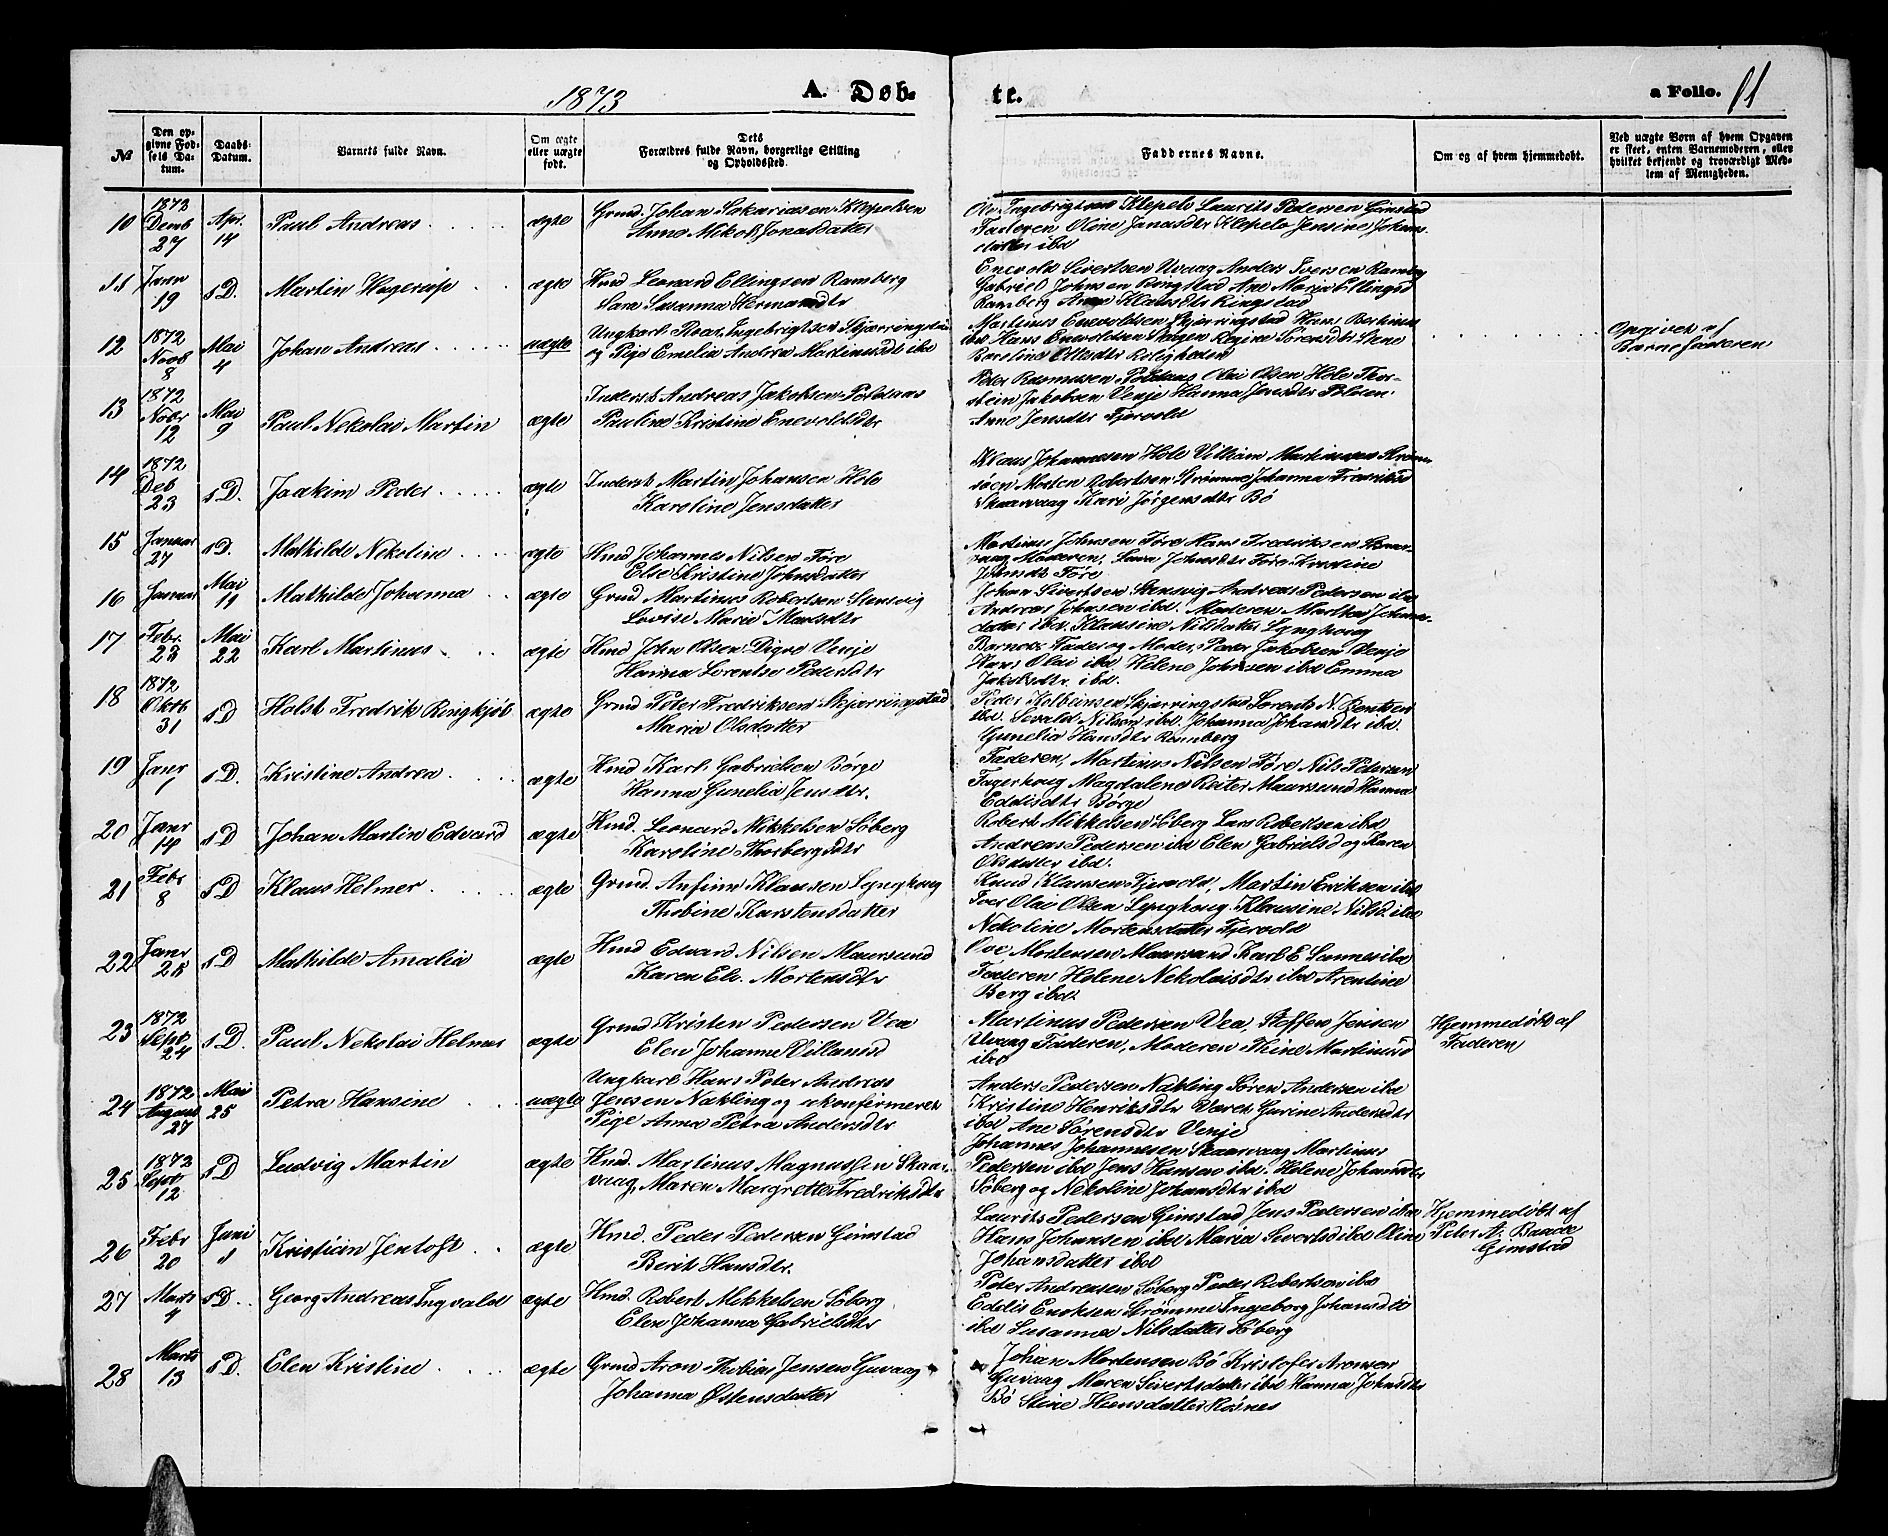 1873 A. Døb-
te. a Folio. 11
No
Den op-
givne Fød-
sels Da-
tum.
Daabs-
Datum.
Barnets fulde Navn.
Om ægte
eller uægte
født.
Dets
Forældres fulde Navn, borgerlige Stilling
og Opholdssted.
Faddernes Navne.
Om og af hvem hjemmedøbt.
Ved uægte Børn af hvem Opgaven
er skeet, enten Barnemoderen, eller
hvilket bekjendt og troværdigt Med-
lem af Menigheden.
10 1872 Demb 27 Apr. 14 Paul Andreas ægte
Grmd. Johan Sakariasen Klepelsen
Anne Nikol. Jonasdatter
Ole Ingebrigtsen Klepels Laurits Pedersen Gimstad
Faderen Oline Jonasdtr Klepels Jensine Johans
datter ibd
11 Janr 19 s D. Martin Hagerup ægte
Hmd Leonard Ellingsen Ramberg
Sara Susanna Hermansdtr
Enevold Sivertsen Uvaag Anders Iversen Ramberg
Gabriel Johnsen Ringstad Ane Maria Ellingsd
Ramberg Anne Klausdtr Ringstad
12 1872 Novb 8 Mai 4 Johan Andreas uægte
Ungkarl Roar Ingebrigtsen Skjærringstad
og Pige Emelia Andrea Martinusdtr ibd
Martinus Enevoldsen Skjærringstad Hans Bertinus
ibd Hans Enevoldsen Skagen Regine Sørensdtr Stene
Karoline Olsdtr Roligheden
Opgivet af
Barnefaderen
13 1872 Nobr 12 Mai 9 Paul Nekolai Martin ægte
Inderst Andreas Jakobsen Poldsnas
Pauline Kristine Enevoldsdtr
Peder Rasmussen Poldsnas Olai Olsen Hole Thor-
stein Jakobsen Venje Hanna Jensdtr Polden
Anne Jensdtr Fjervold
14 1872 Deb 23 s D. Joakim Peder ægte
Inderst Martin Johansen Hole
Karoline Jensdatter
Klaus Johannesen Hole Villiam Martinusen Strøm
søen Morten Robertsen Strømme Johanna Fredriksd
Skaarvaag Kari Jørgensdtr Bø
15 Januar 27 s D. Mathilde Nekoline ægte
Hmd Johannes Nilsen Føre
Else Kristine Johnsdatter
Martinus Johnsen Føre Hans Fredriksen Skaar-
vaag Moderen, Sara Johnsdtr Føre Kristine
Johnsdtr Føre
16 Januar Mai 11 Mathilde Johanna ægte
Grmd Martinus Robertsen Stensvig
Lovise Marie Mardsdtr
Johan Sivertsen Stensvig Andreas Pedersen ibd
Andreas Johnsen ibd. Moderen Martha Johans-
datter ibd. Klausine Nilsdatter Lynghoug
17 Febr. 23 Mai 22 Karl Martinus ægte
Hmd John Olsen Digre Venje
Hanna Lorentse Pedersdtr
Barnets Fader og Moder, Peder Jakobsen Venje
Hans Olai ibd. Helene Johnsen ibd Emma
Jakobsdtr. ibd.
18 1872 Oktb 31 s D Holst Fredrik Ringkjøb ægte
Grmd Peter Fredriksen Skjærringstad
Maria Olsdatter
Peder Kolbeinsen Skjærringstad Lorents N. Bentsen
ibd. Sevald Nilsen ibd. Johanna Johansdtr ibd.
Gunelia Hansdtr Ramberg
19 Janr 1 s D. Kristine Andrea ægte
Hmd Karl Gabrielsen Børge
Hanna Gunelia Jensdtr.
Faderen, Martinus Nilsen Føre Nils Pedersen
Fagerhoug Magdalene Reiter Maursund Hanna
Eddisdtr Børge
20 Janr 14 s D Johan Martin Edvard ægte
Hmd. Leonard Mikkelsen Søberg
Karoline Thorbergsdtr
Robert Mikkelsen Søberg Lars Robertsen ibd
Andreas Pedersen ibd Elen Gabrielsd og Karen
Olsdatter ibd.
21 Febr 8 s D Klaus Helmer ægte
Grmd. Anfinn Klausen Lynghoug
Thobine Karstensdatter
Knud Klausen Fjervold, Martin Eriksen ibd
Iver Olai Olsen Lynghoug. Klausine Nilsd. ibd
Nekoline Mortensdatter Fjervold
22 Janr 28 s D Mathilde Amalia ægte
Hmd Edvard Nilsen Maursund
Karen El. Mortensdtr
Ove Mortensen Maursund Karl E Sennes ibd
Faderen Helene Nekolaisdtr ibd Arentine
Berg ibd.
23 1872 Sept. 24 s D. Paul Nekolai Helmer ægte
Grmd Kristen Pedersen Vea
Elen Johanne Villumsd
Martinus Pedersen Vea, Steffen Jensen
Uvaag Faderen, Moderen Thine Martinusd
ibd
Hjemmedøbt af
Faderen
24 1872 August 27 Mai 25 Petra Hansine uægte
Ungkarl Hans Peter Andreas
Jensen Nakling og ukonfirmeret
Pige Anna Petra Andersdtr
Anders Pedersen Nakling Søren Andersen ibd
Kristine Henriksdtr Varet Gurine Andersdtr
ibd Ane Sørensdtr Venje
25 1872 Septr 12 s D Ludvig Martin ægte
Hmd. Martinus Magnussen Skaar
vaag, Maren Margrethe Fredriksdtr
Johannes Johannesen Skaarvaag Martinus
Pedersen ibd Jens Hansen ibd. Helene Johansdtr
Søberg og Nekoline Johansdtr ibd
26 Febr 20 Juni 1 Kristian Jentoft ægte
Hmd. Peder Pedersen Gimstad
Berit Hansdtr.
Laurits Pedersen Gimstad Jens Pedersen ibd
Hans Johansen ibd Maria Sivertsd ibd Oline
Johansdatter ibd
Hjemmedøbt af
Peter A. Baade
Gimstad
27 Marts 4 s D. Georg Andreas Ingvald ægte
Hmd. Robert Mikkelsen Søberg
Elen Johanna Gabrielsdtr
Peter Andreasen Søberg Peder Robertsen ibd
Eddis Enoksen Strømme Ingeborg Johansdtr
ibd Susanna Nilsdatter Søberg
28 Marts 13 s D. Elen Kristine ægte
Grmd Aron Thobias Jensen Guvaag
Johanna Østensdatter
Johan Mortensen Bø Kristofer Aronsen
Guvaag Maren Sivertsdatter ibd Hanna Johnsdtr
Bø Stine Hansdatter Røsnes